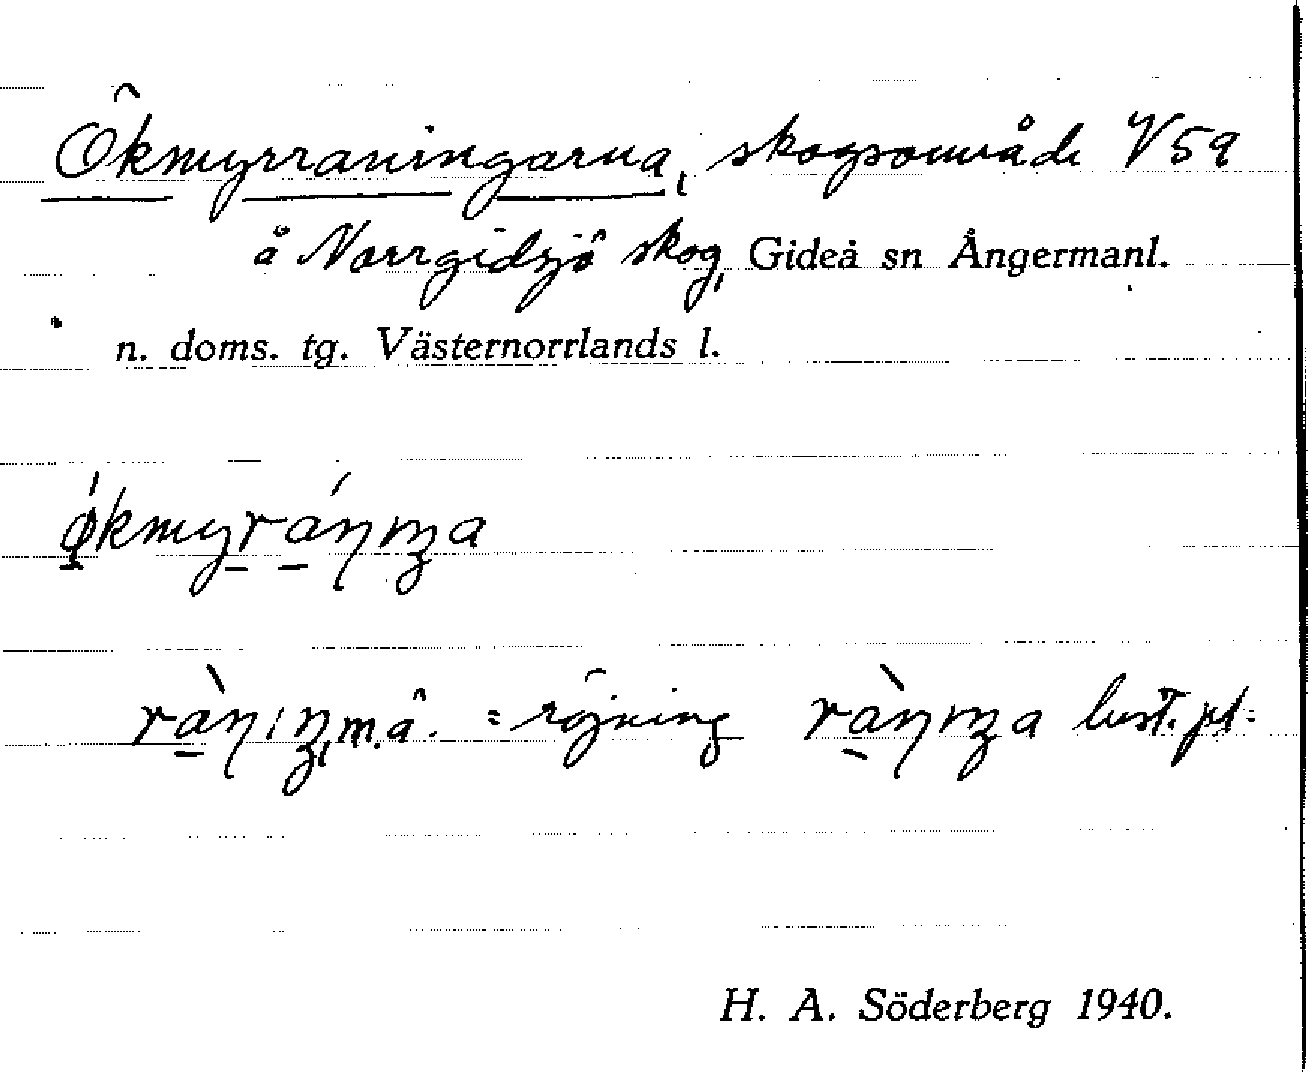 Ökmyrraningarna, skogsområde V59
å Norrgidsjö skog, Gideå sn Ångermanl.
n. doms. tg. Västernorrlands l.
= röjning best. pl.
H. A. Söderberg 1940.